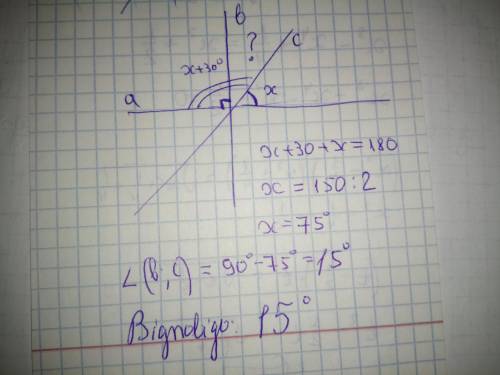 b
?
c
x+30°
x
a
x+30+x=180
x = 150:2
x=75°
∠(b;c) = 90°-75°=15°
Bignoligo: 15°